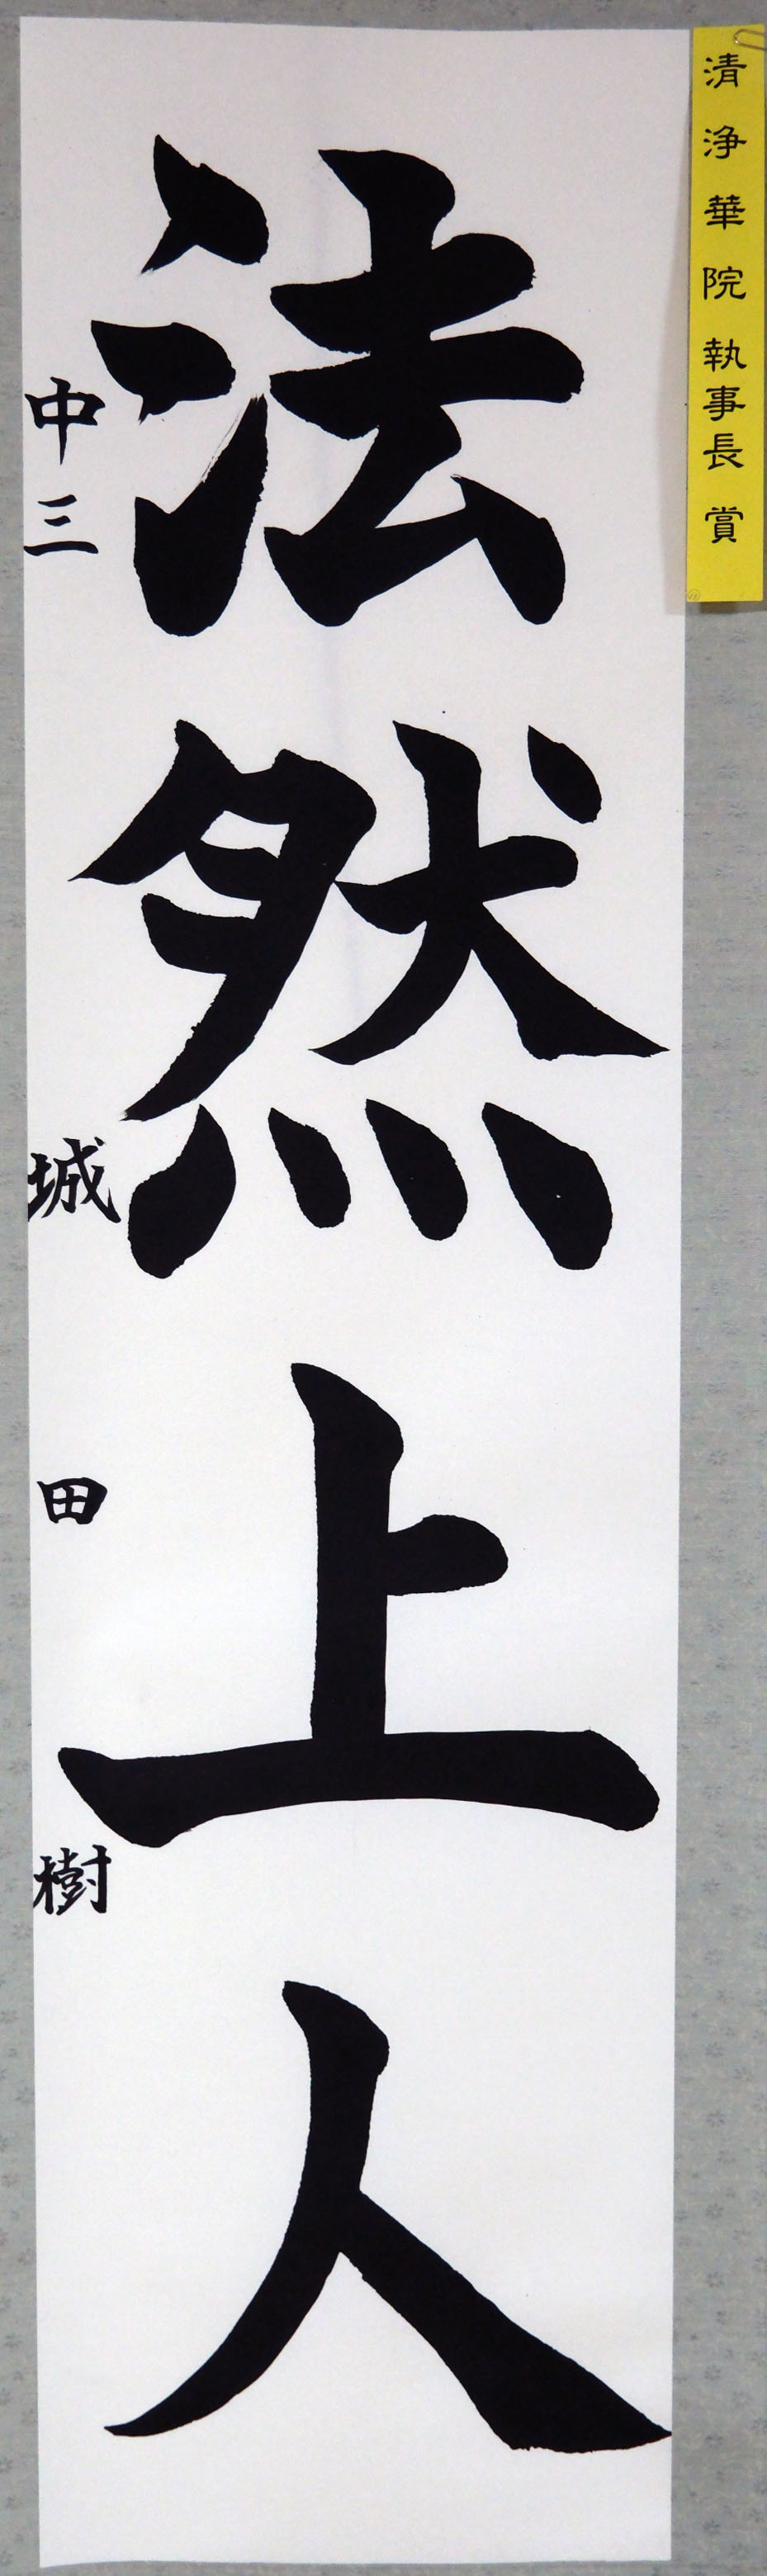 清浄華院執事長賞
法然上人
中三 城田樹